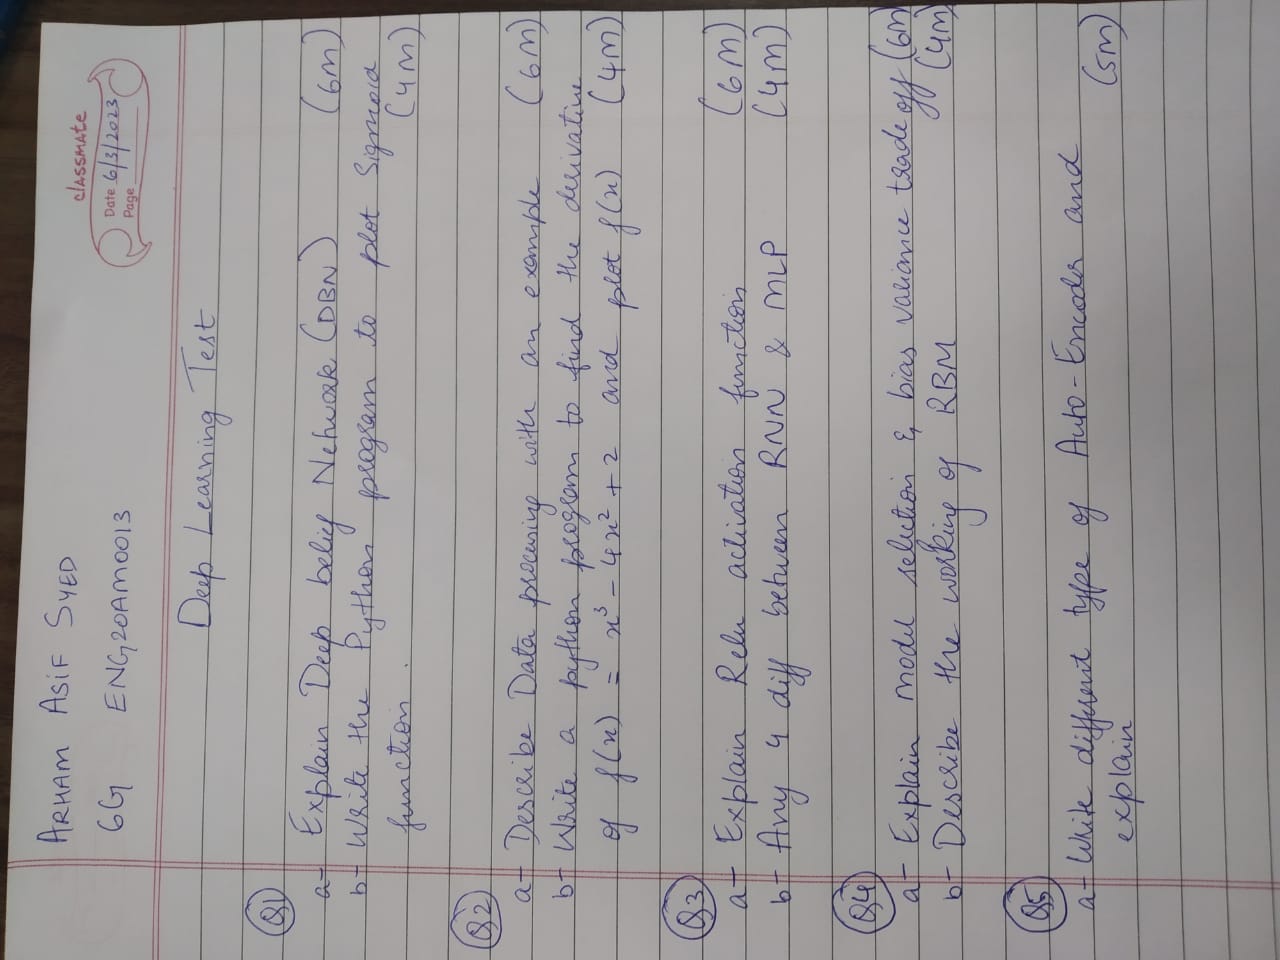 classmate
Date 6/3/2023
Page
ARHAM ASIF SYED
6G ENG20AM0013
Deep Learning Test
Q1
a- Explain Deep belief Network (DBN) (6M)
b- Write the Python program to plot Sigmoid
function. (4M)
Q2
a- Describe Data procesing with an example (6M)
b- Write a python program to find the derivative
of f(x) = x³ - 4x² + 2 and plot f(x) (4M)
Q3
a- Explain Relu activation function (6M)
b- Any 4 diff between RNN & MLP (4M)
Q4
a- Explain model selection & bias variance trade off (6M)
b- Describe the working of RBM (4M)
Q5
a- Write different type of Auto-Encoder and
explain (5M)